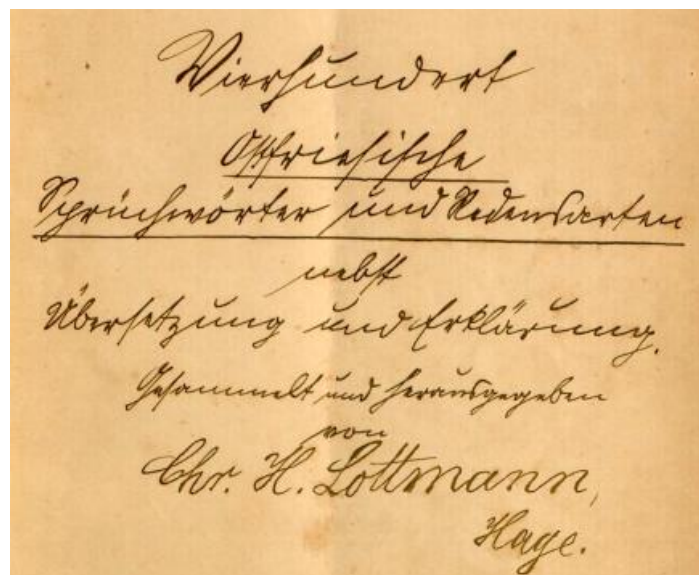 Vierhundert
Ostfriesische
Sprüchwörter und Redensarten
nebst
Übersetzung und Erklärung.
Gesammelt und herausgegeben
von
Chr. H. Lottmann,
Hage.